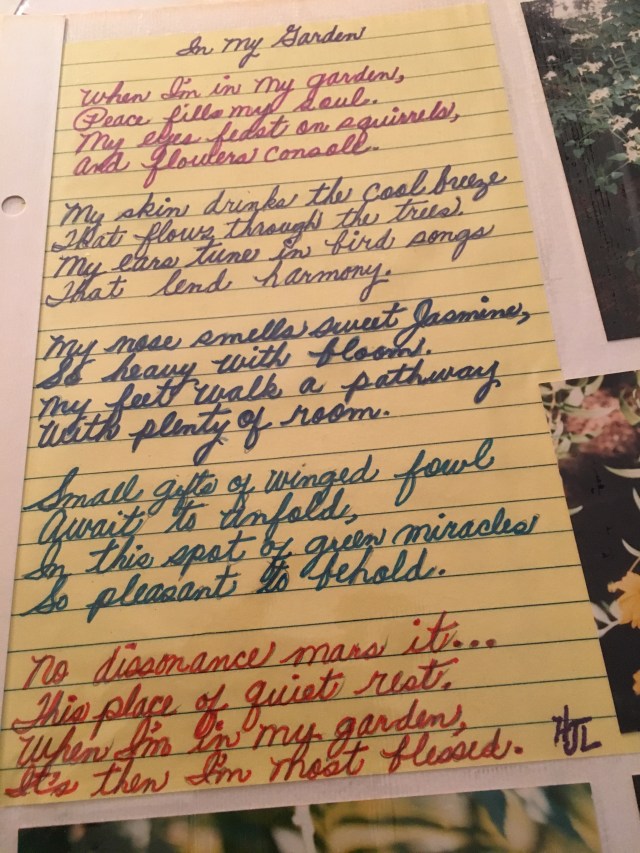 In My Garden
When I'm in my garden,
Peace fills my soul.
My eyes feast on squirrels,
And flowers consoll.
My skin drinks the cool breeze
That flows through the trees.
My ears tune in bird songs
That lend harmony.
My nose smells sweet Jasmine,
So heavy with bloom.
My feet walk a pathway
With plenty of room.
Small gifts of winged fowl
Await to unfold,
In this spot of green miracles
So pleasant to behold.
No dissonance mars it...
This place of quiet rest.
When I'm in my garden,
It's then I'm most blessed.
HJL